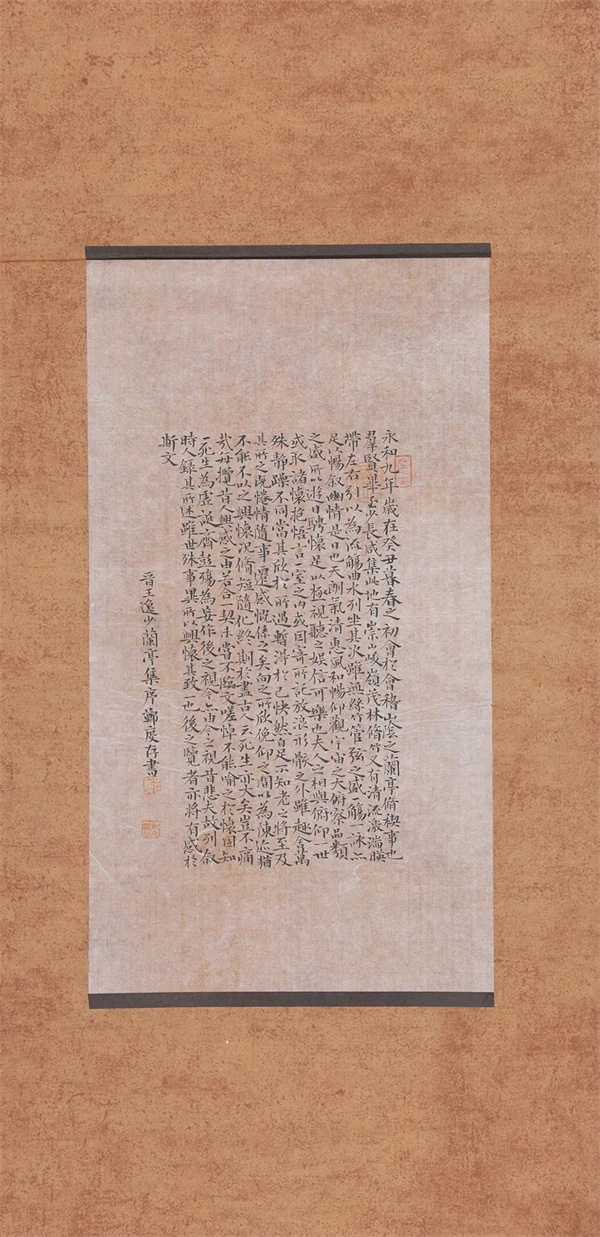 永和九年歲在癸丑暮春之初會於會稽山陰之蘭亭脩禊事也
羣賢畢至少長咸集此地有崇山峻嶺茂林脩竹又有清流激湍暎
帶左右引以為流觴曲水列坐其次雖無絲竹管弦之盛一觴一詠亦
足以暢叙幽情是日也天朗氣清惠風和暢仰觀宇宙之大俯察品類
之盛所以遊目騁懷足以極視聽之娛信可樂也夫人之相與俯仰一世
或取諸懷抱悟言一室之內或因寄所託放浪形骸之外雖趣舍萬
殊静躁不同當其欣於所遇暫得於己怏然自足不知老之將至及
其所之既惓情隨事遷感慨係之矣向之所欣俛仰之間以為陳迹猶
不能不以之興懷況脩短隨化終期於盡古人云死生亦大矣豈不痛
哉每攬昔人興感之由若合一契未嘗不臨文嗟悼不能喻之於懷固知
一死生為虛誕齊彭殤為妄作後之視今亦由今之視昔悲夫故列叙
時人錄其所述雖世殊事異所以興懷其致一也後之覽者亦將有感於
斯文
晉王逸少蘭亭集序鄭度存書